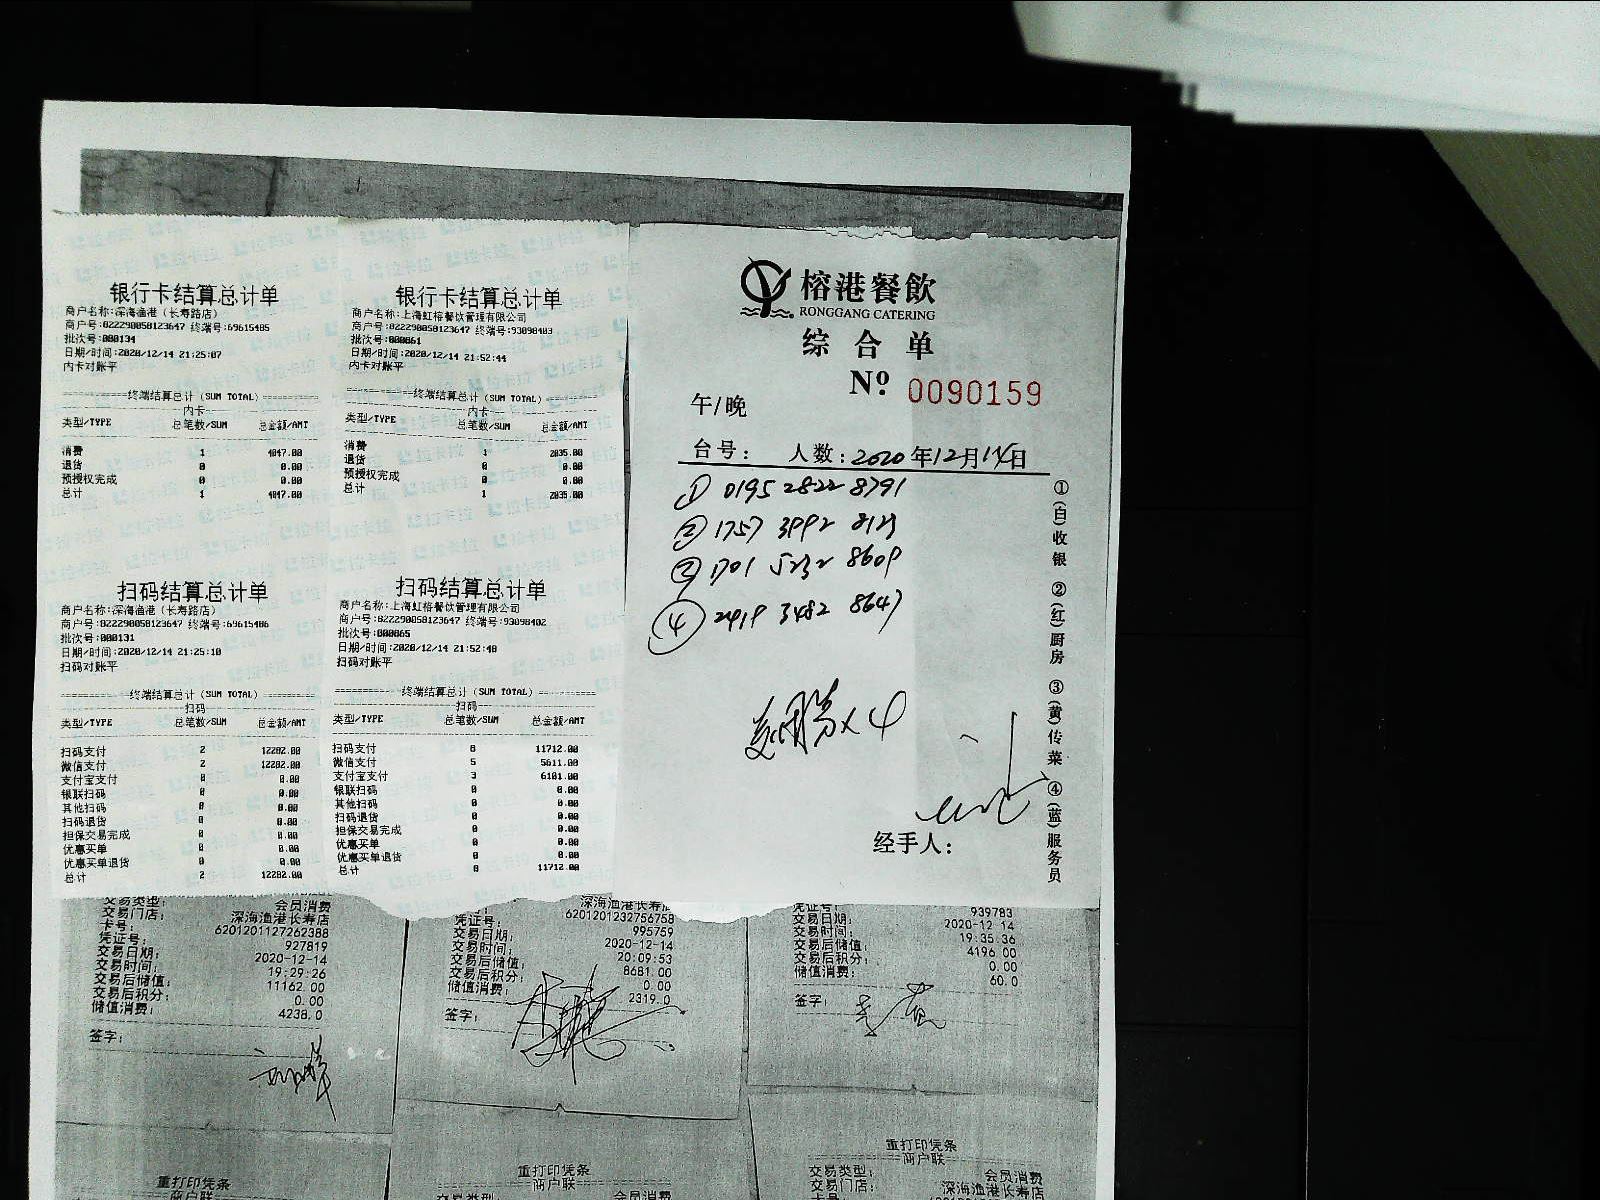 银行卡结算总计单
商户名称:深海渔港(长寿路店)
商户号:822290058123647 终端号:69615485
批次号:000134
日期/时间:2020/12/14 21:25:07
内卡对账平
终端结算总计(SUM TOTAL)
内卡
类型/TYPE 总笔数/SUM 总金额/AMT
消费 1 4047.00
退货 0 0.00
预授权完成 0 0.00
总计 1 4047.00
扫码结算总计单
商户名称:深海渔港(长寿路店)
商户号:822290058123647 终端号:69615486
批次号:000131
日期/时间:2020/12/14 21:25:10
扫码对账平
终端结算总计(SUM TOTAL)
扫码
类型/TYPE 总笔数/SUM 总金额/AMT
扫码支付 2 12202.00
微信支付 2 12202.00
支付宝支付 0 0.00
银联扫码 0 0.00
其他扫码 0 0.00
扫码退货 0 0.00
担保交易完成 0 0.00
优惠买单 0 0.00
优惠买单退货 0 0.00
总计 2 12202.00
银行卡结算总计单
商户名称:上海虹榕餐饮管理有限公司
商户号:822290058123647 终端号:93098403
批次号:000061
日期/时间:2020/12/14 21:52:44
内卡对账平
终端结算总计(SUM TOTAL)
内卡
类型/TYPE 总笔数/SUM 总金额/AMT
消费 1 2035.00
退货 0 0.00
预授权完成 0 0.00
总计 1 2035.00
扫码结算总计单
商户名称:上海虹榕餐饮管理有限公司
商户号:822290058123647 终端号:93098402
批次号:000065
日期/时间:2020/12/14 21:52:48
扫码对账平
终端结算总计(SUM TOTAL)
扫码
类型/TYPE 总笔数/SUM 总金额/AMT
扫码支付 8 11712.00
微信支付 5 5611.00
支付宝支付 3 6101.00
银联扫码 0 0.00
其他扫码 0 0.00
扫码退货 0 0.00
担保交易完成 0 0.00
优惠买单 0 0.00
优惠买单退货 0 0.00
总计 8 11712.00
榕港餐飲
RONGGANG CATERING
综合单
Nº 0090159
午/晚
台号: 人数:2020年12月14日
① 0195 2822 8791
② 1757 3992 8123
③ 1701 5232 8609
④ 2419 3482 8647
经手人:
①(白)收银 ②(红)厨房 ③(黄)传菜 ④(蓝)服务员
交易类型: 会员消费
交易门店: 深海渔港长寿店
卡号: 6201201127262388
凭证号: 927819
交易日期: 2020-12-14
交易时间: 19:29:26
交易后储值: 11162.00
交易后积分: 0.00
储值消费: 4238.0
签字:
深海渔港长寿店
6201201232756758
凭证号: 995759
交易日期: 2020-12-14
交易时间: 20:09:53
交易后储值: 8681.00
交易后积分: 0.00
储值消费: 2319.0
签字:
凭证号: 939783
交易日期: 2020-12-14
交易时间: 19:35:36
交易后储值: 4196.00
交易后积分: 0.00
储值消费: 60.0
签字:
重打印凭条
商户联
重打印凭条
商户联
交易类型: 会员消费
重打印凭条
商户联
交易类型: 会员消费
交易门店: 深海渔港长寿店